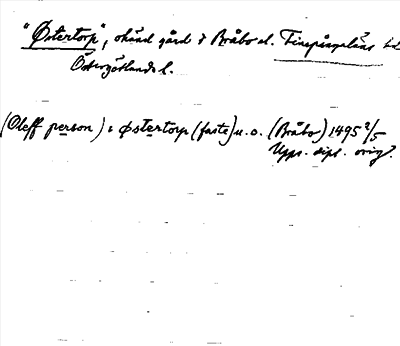 "Østertorp", okänd gård i Bråbo el. Finspångaläns hd
Östergötlands l.
(Oleff person) i Østertorp (faste) u.o. (Bråbo) 1495 2/5
Upps. dipl. orig.